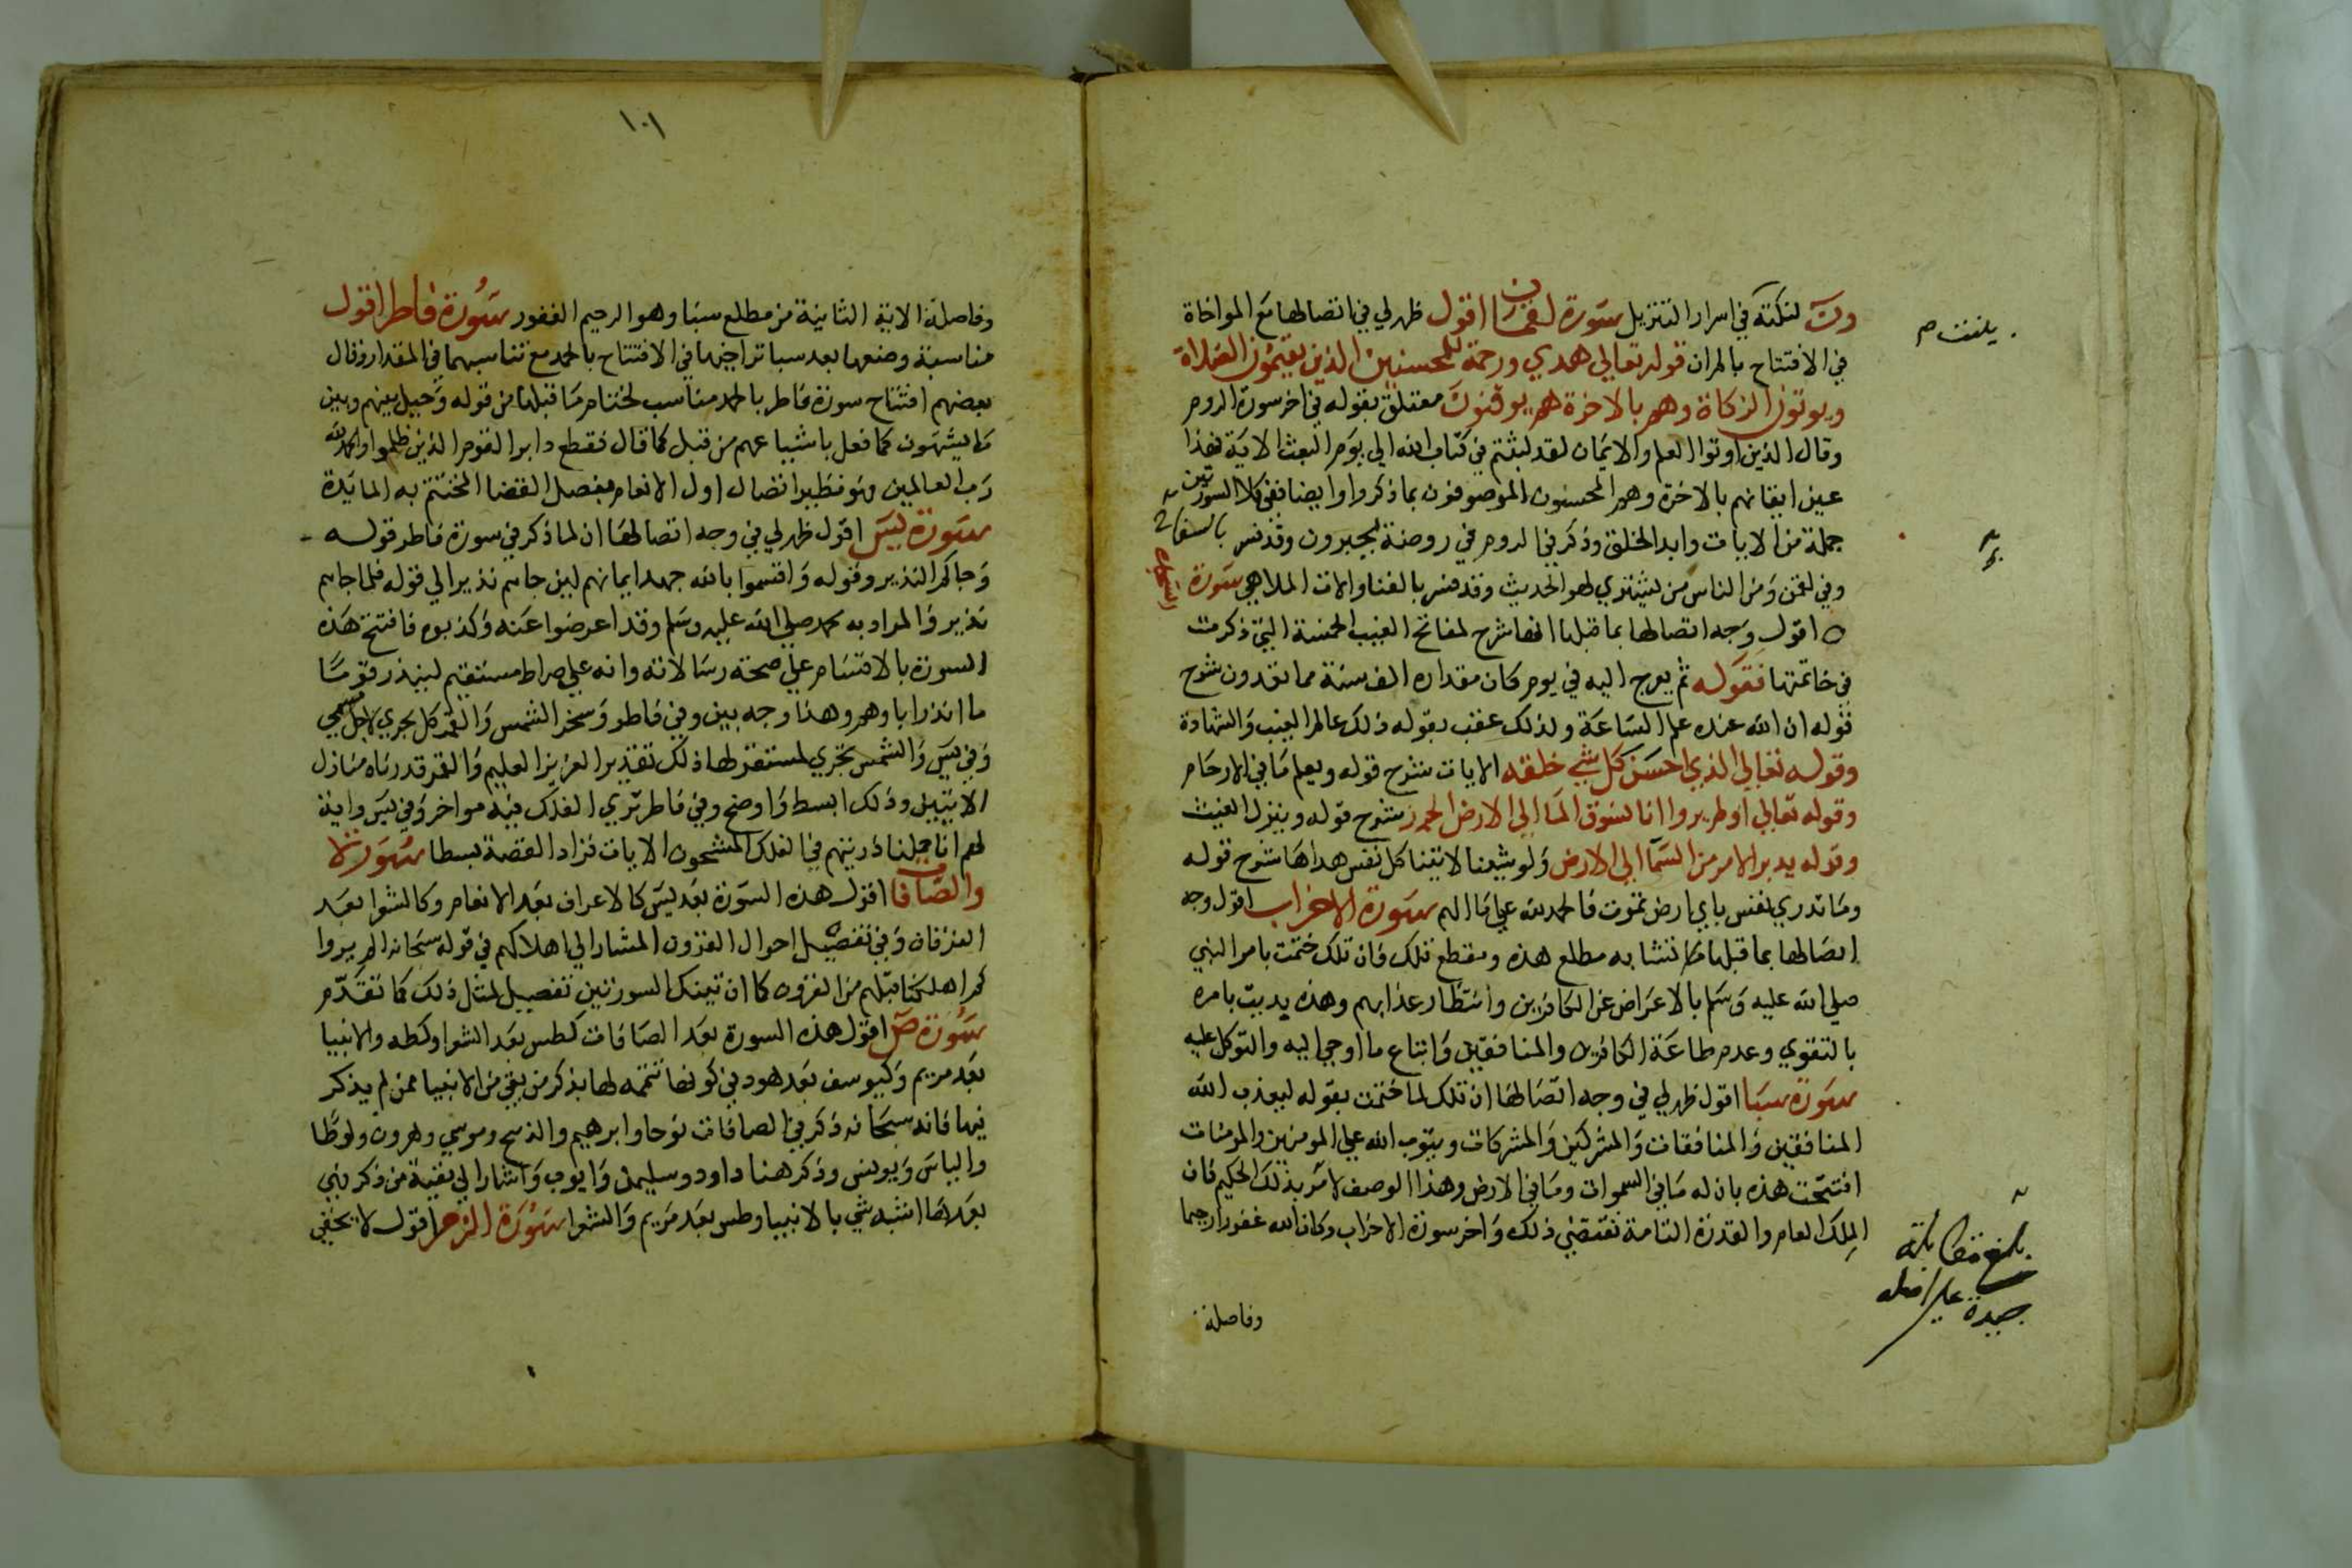 ون لنكتة في اسرار التنزيل سورة لقمان اقول ظهر لي في اتصالها مع المواخاة
في الافتتاح بالم ان قوله تعالي هدي ورحمة للمحسنين الذين يقيمون الصلاة
ويوتون الزكاة وهم بالاخرة هم يوقنون متعلق بقوله في اخر سورة الروم
وقال الذين اوتوا العلم والايمان لقد لبثتم في كتاب الله الي يوم البعث الاية فهذا
عين ايقانهم بالاخرة وهم المحسنون الموصوفون بما ذكروا وايضا ففي كلا السورتين
جملة من الايات وابدا الخلق وذكر في الروم في روضة يحبرون وقد فسر بالسماع
وفي لقمن ومن الناس من يشتري لهو الحديث وقد فسر بالغنا والات الملاهي سورة السجدة
اقول وجه اتصالها بما قبلها انها شرح لمفاتح الغيب الخمسة التي ذكرت
في خاتمتها فقوله ثم يعرج اليه في يوم كان مقداره الف سنة مما تعدون شرح
قوله ان الله عنده علم الساعة ولذلك عقب بقوله ذلك عالم الغيب والشهادة
وقوله تعالي الذي احسن كل شي خلقه الايات شرح قوله ويعلم ما في الارحام
وقوله تعالي اولم يروا انا نسوق الما الي الارض الجرز شرح قوله وينزل الغيث
وقوله يدبر الامر من السما الي الارض ولو شينا لاتينا كل نفس هداها شرح قوله
وما تدري نفس باي ارض تموت فالحمد لله علي ما الهم سورة الاحزاب اقول وجه
اتصالها بما قبلها تشابه مطلع هذه ومقطع تلك فان تلك ختمت بامر النبي
صلي الله عليه وسلم بالاعراض عن الكافرين وانتظار عذابهم وهذه بديت بامره
بالتقوي وعدم طاعة الكافرين والمنافقين واتباع ما اوحي اليه والتوكل عليه
سورة سبا اقول ظهر لي في وجه اتصالها ان تلك لما ختمت بقوله ليعذب الله
المنافقين والمنافقات والمشركين والمشركات ويتوب الله علي المومنين والمومنات
افتتحت هذه بان له ما في السموات وما في الارض وهذا الوصف لامر بذلك الحكيم فان
الملك العام والقدرة التامة تقتضي ذلك واخر سورة الاحزاب وكان الله غفورا رحيما
وفاصلة
بلغ مقابلة
جيدة علي اصله
١٠١
وفاصلة الاية الثانية من مطلع سبا وهو الرحيم الغفور سورة فاطر اقول
مناسبة وضعها بعد سبا تواخيهما في الافتتاح بالحمد مع تناسبهما في المقدار وقال
بعضهم افتتاح سورة فاطر بالحمد مناسب لختام ما قبلها من قوله وحيل بينهم وبين
ما يشتهون كما فعل باشياعهم من قبل كما قال فقطع دابر القوم الذين ظلموا والحمد لله
رب العالمين وهو نظير اتصال اول الانعام بفصل القضا المختتم به المايدة
سورة يس اقول ظهر لي في وجه اتصالها ان لما ذكر في سورة فاطر قوله
وجاكم النذير وقوله واقسموا بالله جهد ايمانهم لين جاهم نذير الي قوله فلما جاهم
نذير والمراد به محمد صلي الله عليه وسلم وقد اعرضوا عنه وكذبوه فافتتح هذه
السورة بالاقسام علي صحة رسالاته وانه علي صراط مستقيم لينذر قوما
ما انذر اباوهم وهذا وجه بين وفي فاطر وسخر الشمس والقمر كل يجري لاجل مسمي
وفي يس والشمس تجري لمستقر لها ذلك تقدير العزيز العليم والقمر قدرناه منازل
الايتين وذلك ابسط واوضح وفي فاطر تري الفلك فيه مواخر وفي يس واية
لهم انا حملنا ذريتهم في الفلك المشحون الايات فزاد القصة بسطا سورة
والصافات اقول هذه السورة بعد يس كالاعراف بعد الانعام وكالشعرا بعد
الفرقان وفي تفصيل احوال القرون المشار الي اهلاكهم في قوله سبحانه الم يروا
كم اهلكنا قبلهم من القرون كما ان تينك السورتين تفصيل لمثل ذلك كما تقدم
سورة ص اقول هذه السورة بعد الصافات كطس بعد الشعرا وكطه والانبيا
بعد مريم وكيوسف بعد هود في كونها تتمة لها بذكر من بقي من الانبيا ممن لم يذكر
فيها فانه سبحانه ذكر في الصافات نوحا وابرهيم والذبيح وموسي وهرون ولوطا
والياس ويونس وذكر هنا داود وسليمن وايوب واشار الي بقية من ذكر فهي
بعدها اشبه شي بالانبيا وطس بعد مريم والشعرا سورة الزمر اقول لا يخفي